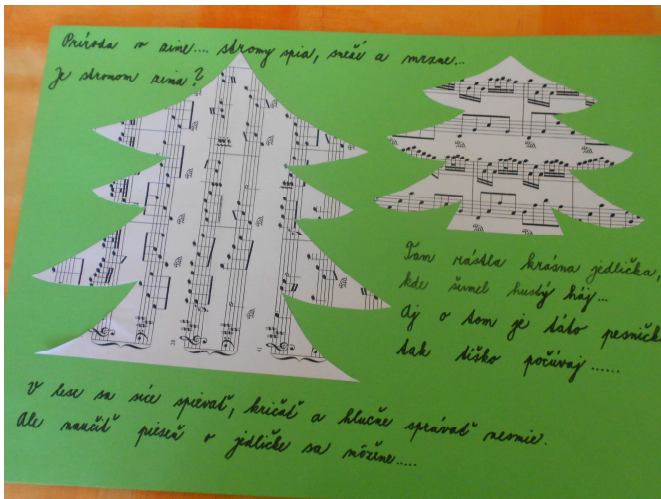 Príroda v zime.... stromy spia, sneží a mrzne...
Je stromom zima?
Tam rástla krásna jedlička,
kde šumel hustý háj...
Aj o tom je táto pesnička
tak tiško počúvaj......
V lese sa síce spievať, kričať a hlučne správať nesmie.
Ale naučiť pieseň o jedličke sa môžeme.....